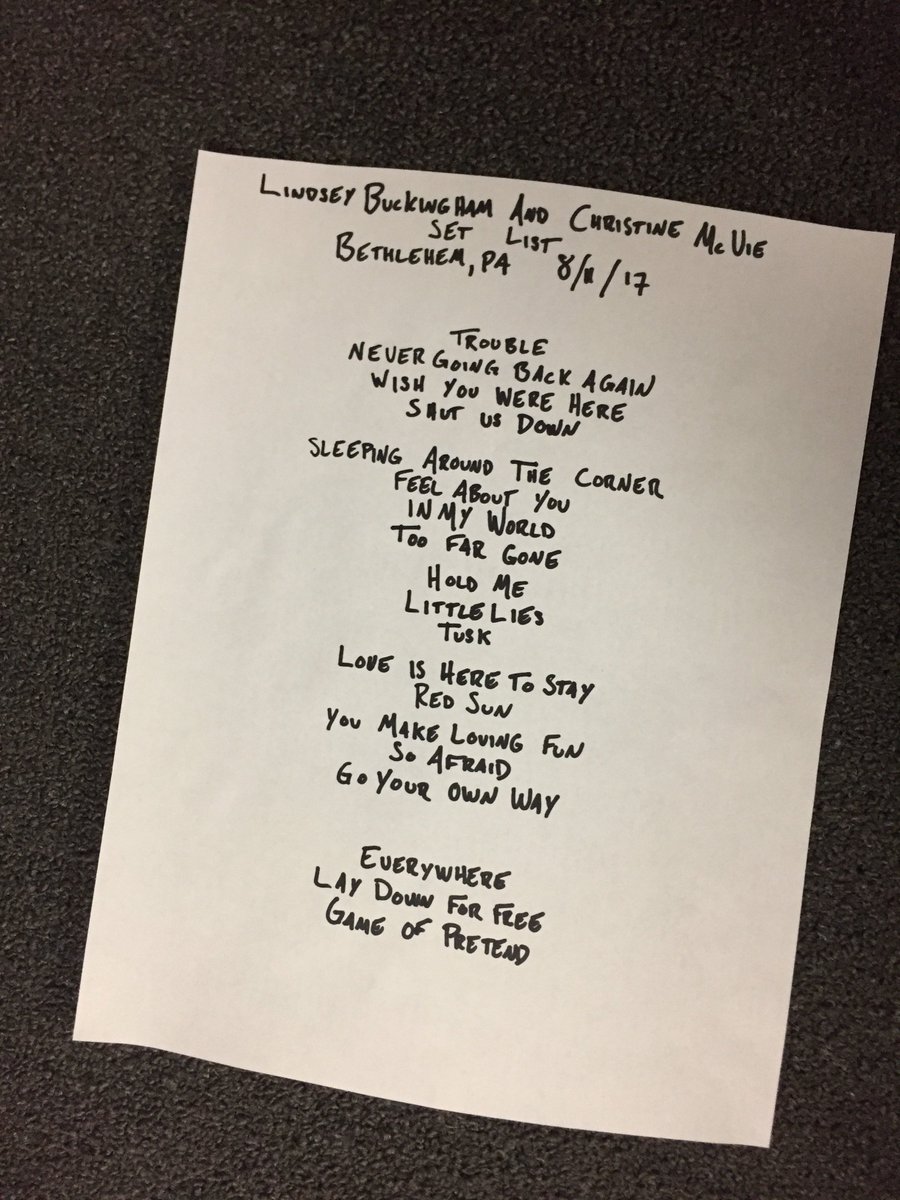 LINDSEY BUCKINGHAM AND CHRISTINE MCVIE
SET LIST
BETHLEHEM, PA 8/11/17
TROUBLE
NEVER GOING BACK AGAIN
WISH YOU WERE HERE
SHUT US DOWN
SLEEPING AROUND THE CORNER
FEEL ABOUT YOU
IN MY WORLD
TOO FAR GONE
HOLD ME
LITTLE LIES
TUSK
LOVE IS HERE TO STAY
RED SUN
YOU MAKE LOVING FUN
SO AFRAID
GO YOUR OWN WAY
EVERYWHERE
LAY DOWN FOR FREE
GAME OF PRETEND